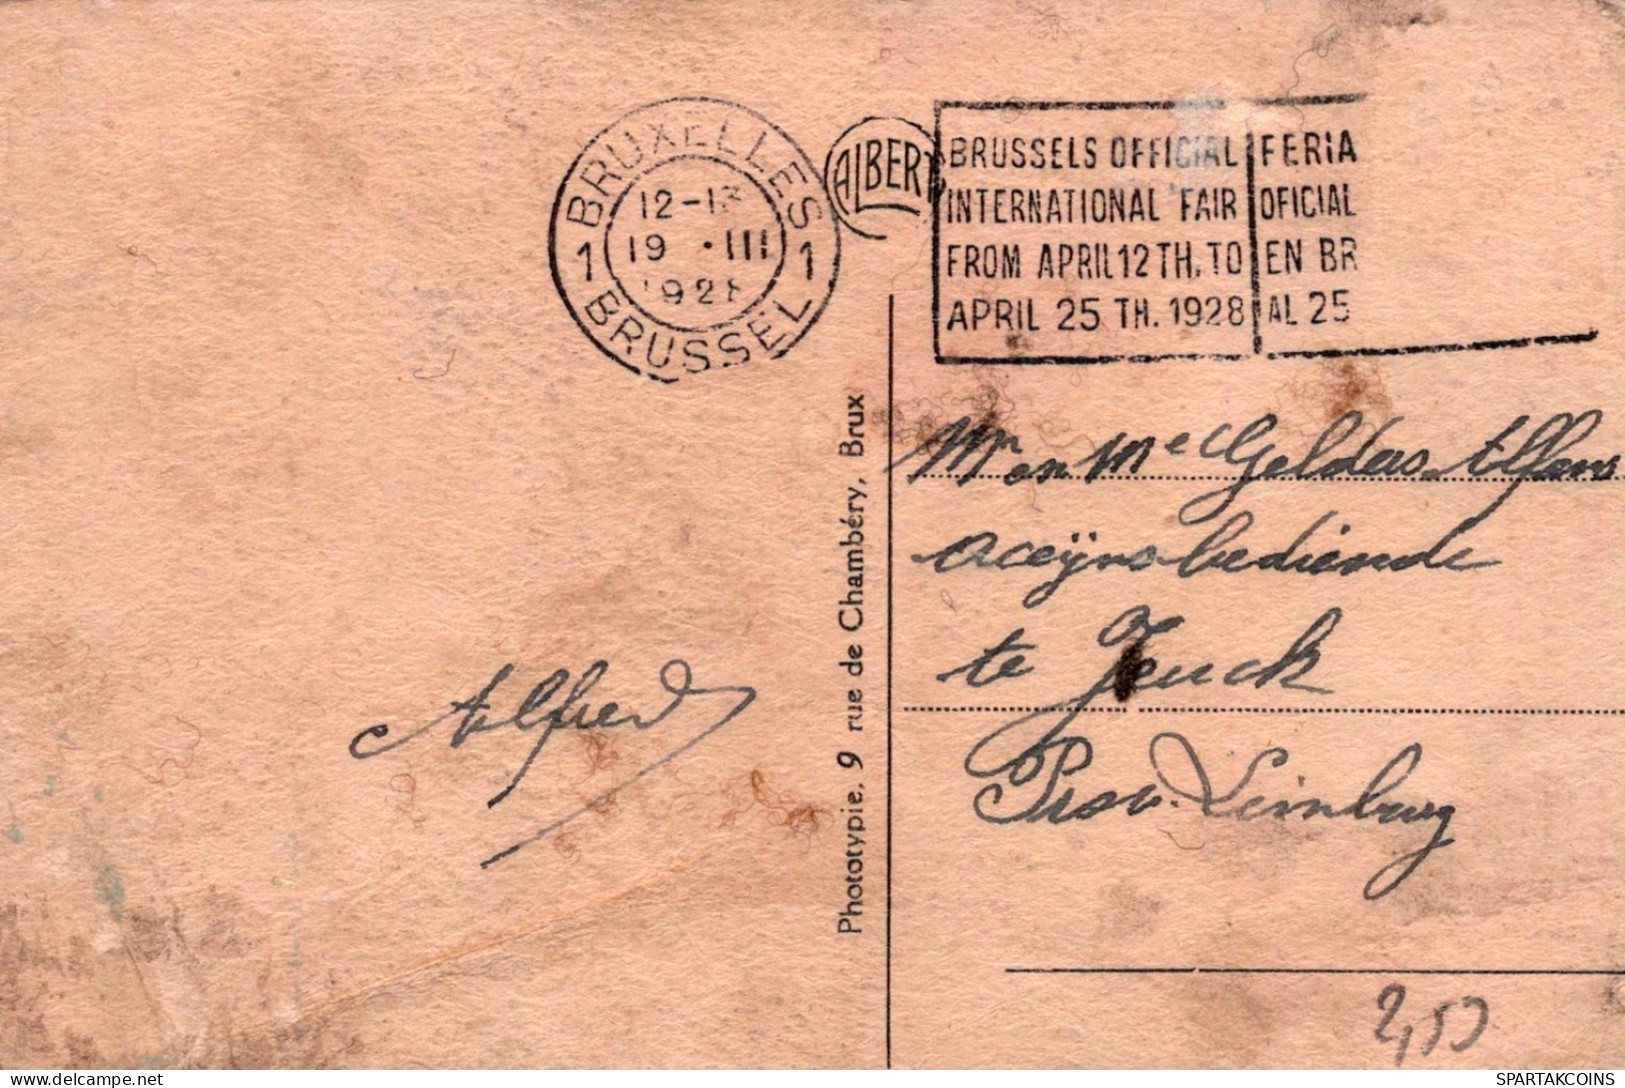 BRUXELLES
12-13
19 · III
1928
1 1
BRUSSEL
ALBERT
BRUSSELS OFFICIAL
INTERNATIONAL FAIR
FROM APRIL 12 TH. TO
APRIL 25 TH. 1928
FERIA
OFICIAL
EN BR
AL 25
Mr en Me Gelders Alfons
accijnsbediende
te Jeuck
Prov. Limburg
Alfred
Phototypie, 9 rue de Chambéry, Brux
2,50
delcampe.net
SPARTAKCOINS